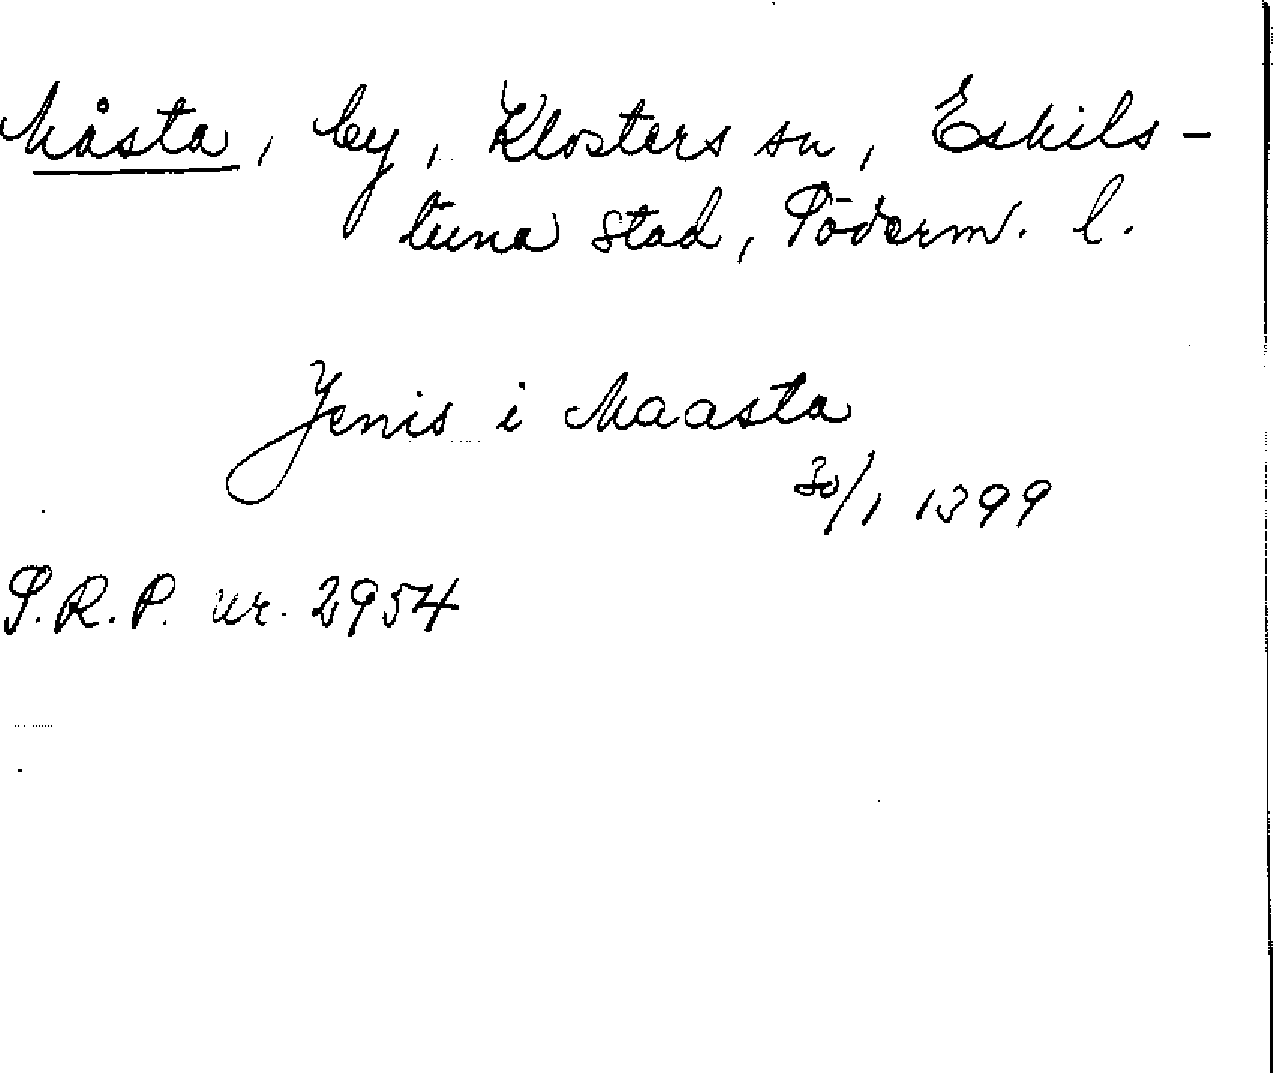 Måsta, by, Klosters sn, Eskils-
tuna stad, Söderm. l.
Jenis i Maasta
30/1 1399
S.R.P. nr. 2954